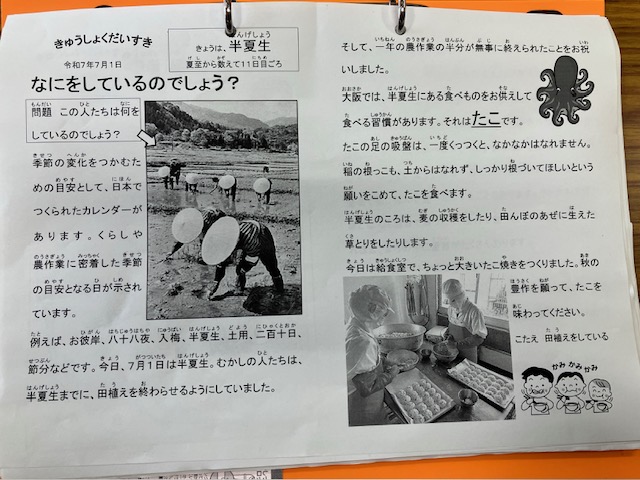 きゅうしょくだいすき
令和7年7月1日
きょうは、半夏生
夏至から数えて11日目ごろ
なにをしているのでしょう？
問題 この人たちは何を
しているのでしょう？
季節の変化をつかむた
めの目安として、日本で
つくられたカレンダーが
あります。くらしや
農作業に密着した季節
の目安となる日が示され
ています。
例えば、お彼岸、八十八夜、入梅、半夏生、土用、二百十日、
節分などです。今日、7月1日は半夏生。むかしの人たちは、
半夏生までに、田植えを終わらせるようにしていました。
そして、一年の農作業の半分が無事に終えられたことをお祝
いしました。
大阪では、半夏生にある食べものをお供えして
食べる習慣があります。それはたこです。
たこの足の吸盤は、一度くっつくと、なかなかはなれません。
稲の根っこも、土からはなれず、しっかり根づいてほしいという
願いをこめて、たこを食べます。
半夏生のころは、麦の収穫をしたり、田んぼのあぜに生えた
草とりをしたりします。
今日は給食室で、ちょっと大きいたこ焼きをつくりました。秋の
豊作を願って、たこを
味わってください。
こたえ 田植えをしている
かみ かみ かみ